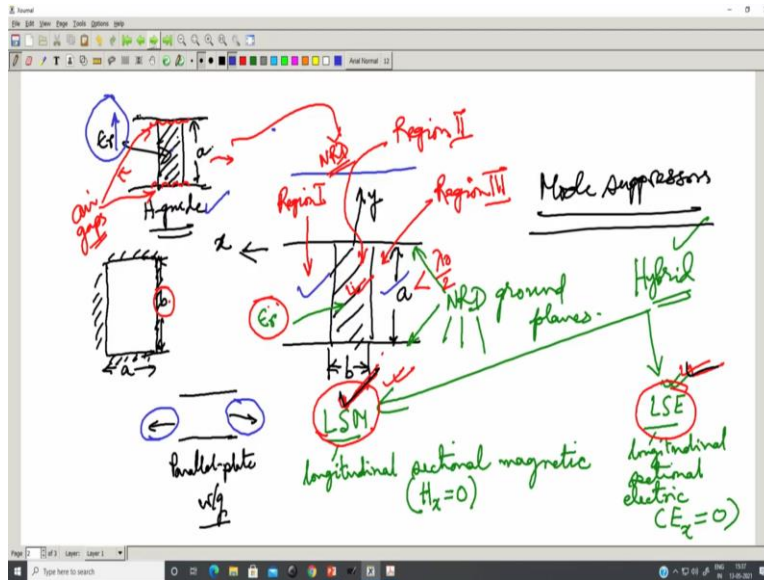 Xournal
File Edit View Page Tools Options Help
Arial Normal 12
Er
a
NRD
Region II
air gaps
H-guide
Region I
y
Region III
Mode suppressors
x
Er
a < λ0/2
NRD ground planes.
Hybrid
b
a
b
LSM
LSE
Parallel-plate
w/g
longitudinal sectional magnetic
(Hx=0)
longitudinal
sectional
electric
(Ex=0)
Page 2 of 3 Layer: Layer 1
Type here to search
ENG
IN
15:07
13-05-2021